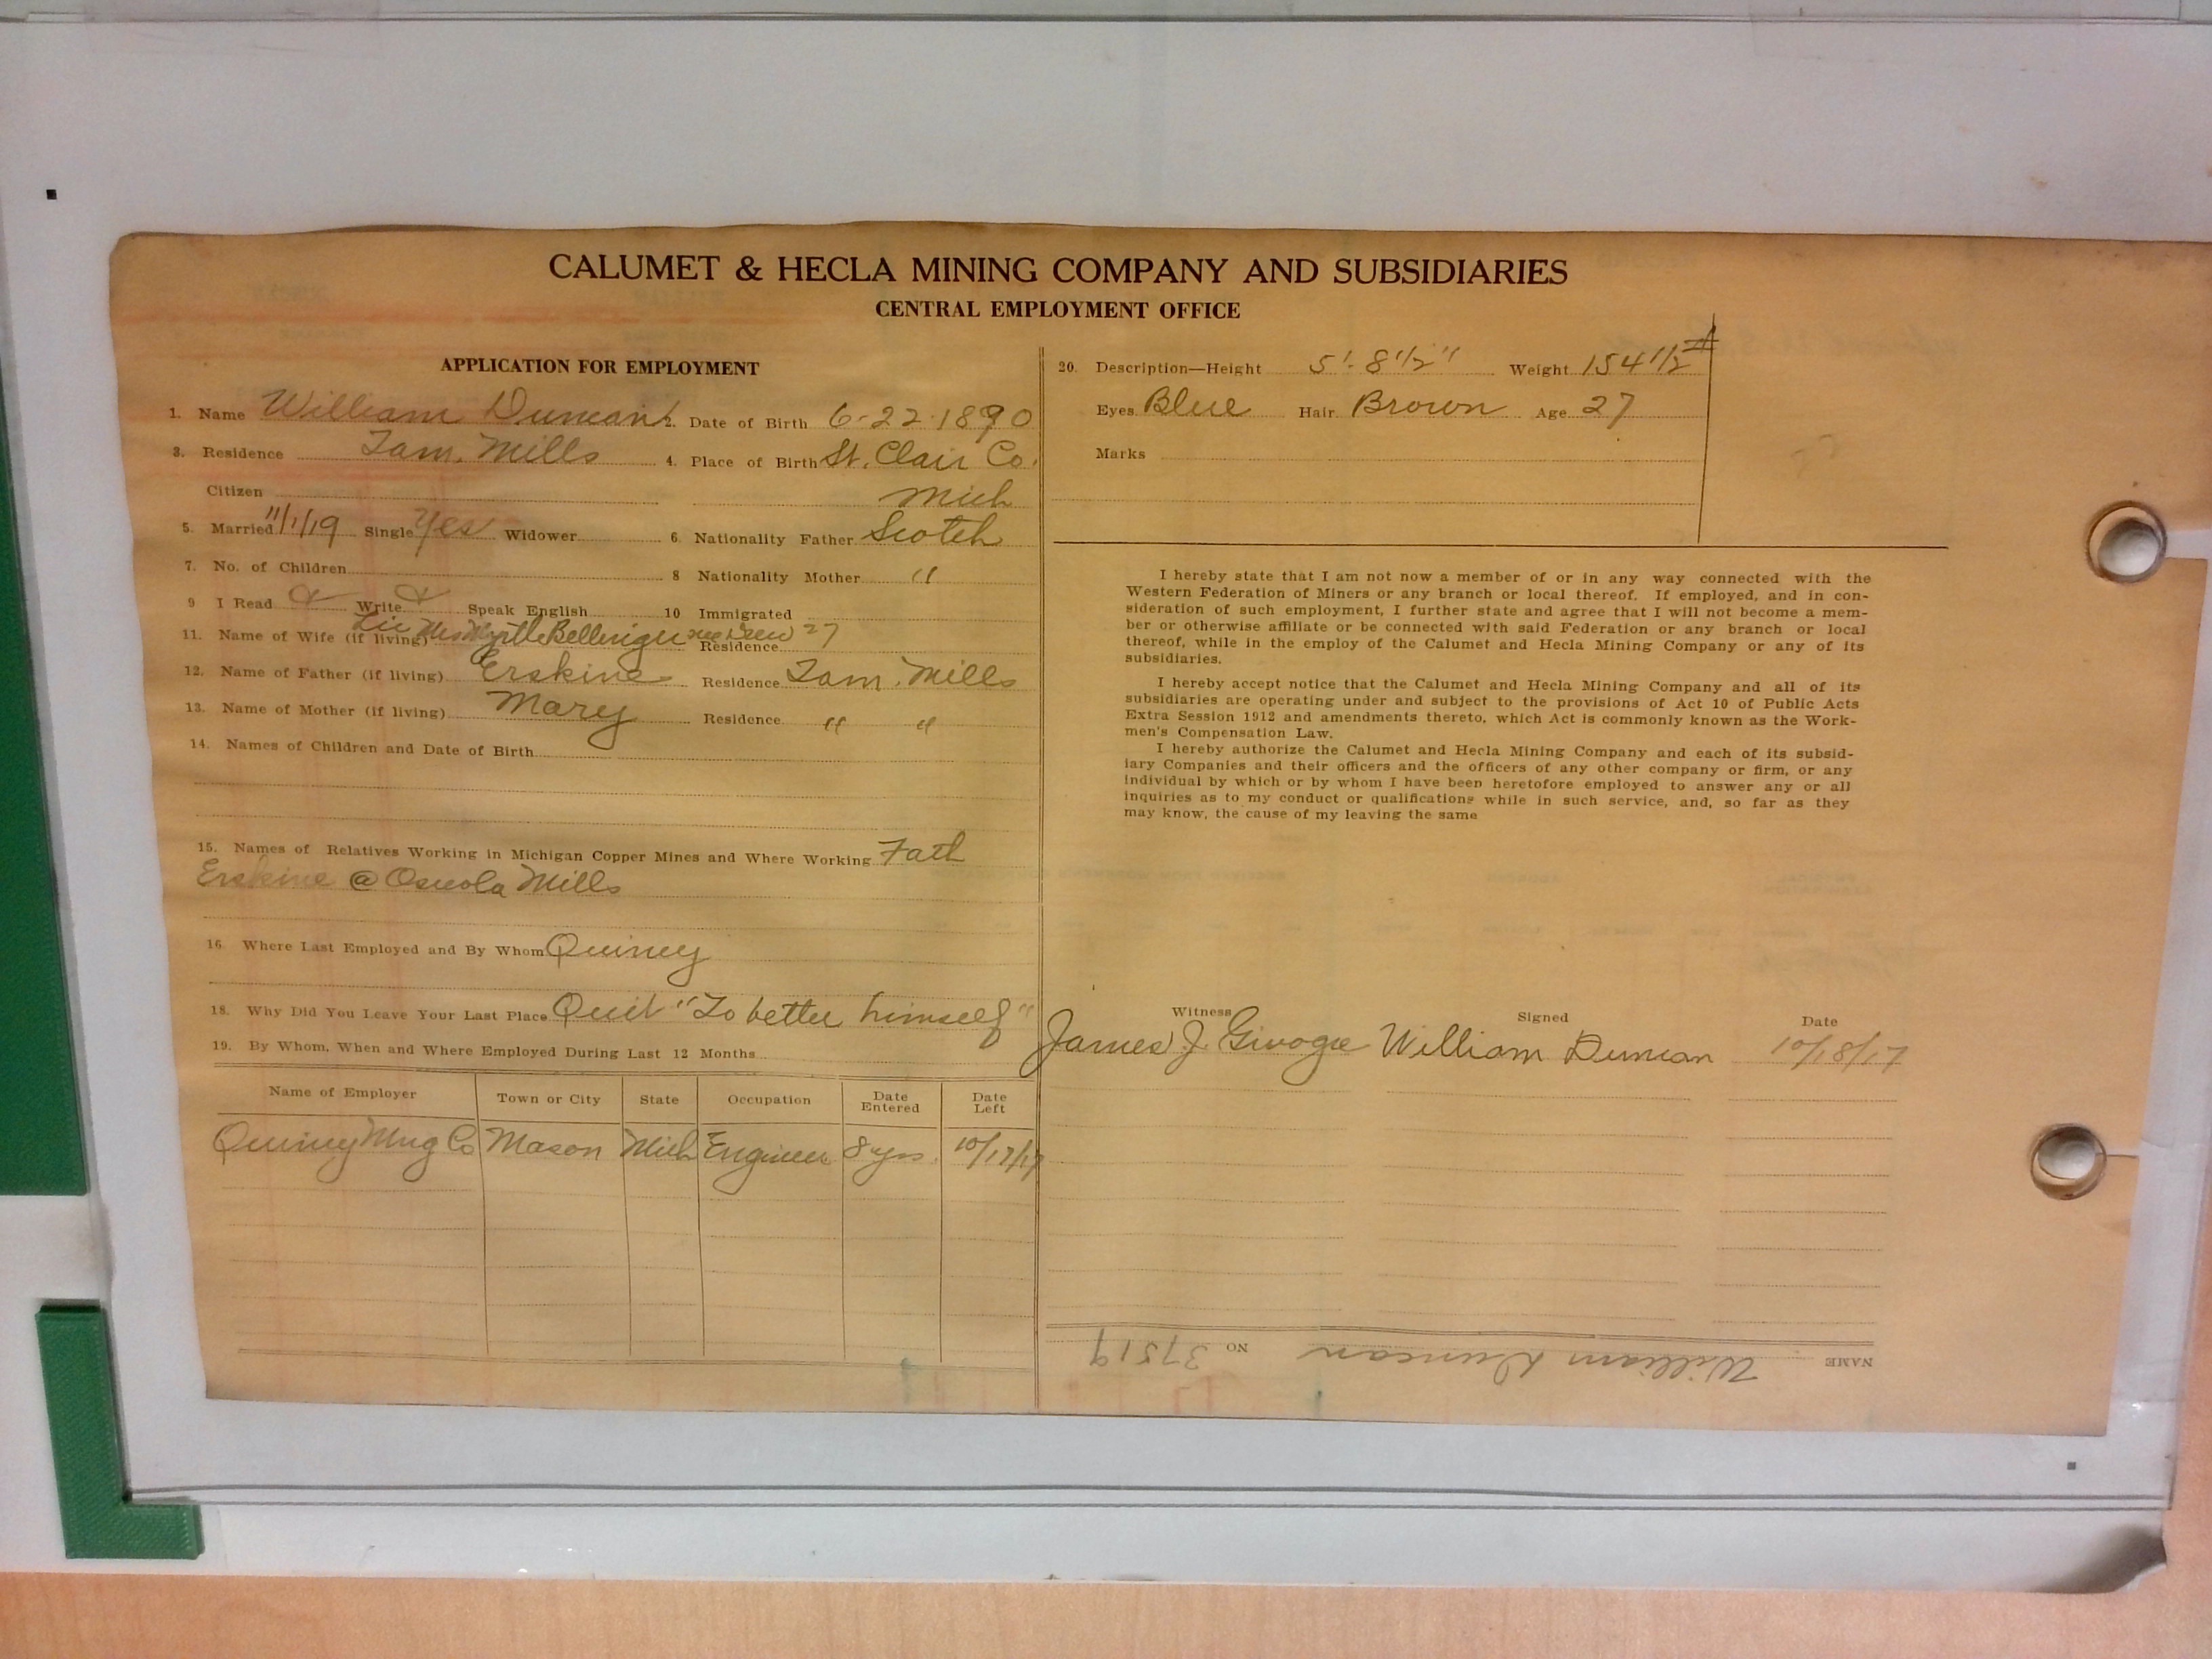 CALUMET & HECLA MINING COMPANY AND SUBSIDIARIES
CENTRAL EMPLOYMENT OFFICE
APPLICATION FOR EMPLOYMENT
1. Name William Duncan 2. Date of Birth 6-22-1890
3. Residence Tam. Mills 4. Place of Birth St. Clair Co.
Citizen Mich
5. Married 11/1/19 Single Yes Widower 6. Nationality Father Scotch
7. No. of Children 8 Nationality Mother "
9 I Read Write Speak English 10 Immigrated
11. Name of Wife (if living) Lic Mrs Myrtle Bellinger Residence 27
12. Name of Father (if living) Erskine Residence Tam. Mills
13. Name of Mother (if living) Mary Residence " "
14. Names of Children and Date of Birth
15. Names of Relatives Working in Michigan Copper Mines and Where Working Fath
Erskine @ Osceola Mills
16. Where Last Employed and By Whom Quincy
18. Why Did You Leave Your Last Place Quit "To better himself"
19. By Whom, When and Where Employed During Last 12 Months
Name of Employer Town or City State Occupation Date Entered Date Left
Quincy Mng Co Mason Mich Engineer 8 yrs. 10/17/17
20. Description—Height 5'-8 1/2" Weight 154 1/2 #
Eyes Blue Hair Brown Age 27
Marks
I hereby state that I am not now a member of or in any way connected with the
Western Federation of Miners or any branch or local thereof. If employed, and in con-
sideration of such employment, I further state and agree that I will not become a mem-
ber or otherwise affiliate or be connected with said Federation or any branch or local
thereof, while in the employ of the Calumet and Hecla Mining Company or any of its
subsidiaries.
I hereby accept notice that the Calumet and Hecla Mining Company and all of its
subsidiaries are operating under and subject to the provisions of Act 10 of Public Acts
Extra Session 1912 and amendments thereto, which Act is commonly known as the Work-
men's Compensation Law.
I hereby authorize the Calumet and Hecla Mining Company and each of its subsid-
iary Companies and their officers and the officers of any other company or firm, or any
individual by which or by whom I have been heretofore employed to answer any or all
inquiries as to my conduct or qualifications while in such service, and, so far as they
may know, the cause of my leaving the same
Witness Signed Date
James J. William Duncan 10/18/17
NAME William Duncan NO 37519